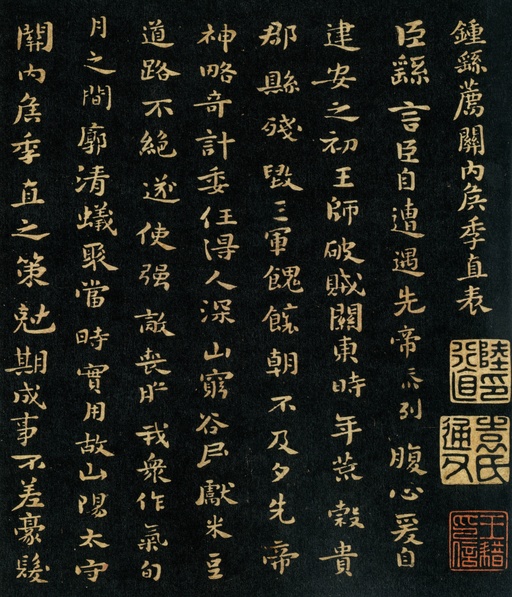 鍾繇薦關内侯季直表
臣繇言臣自遭遇先帝忝列腹心爰自
建安之初王師破賊關東時年荒穀貴
郡縣殘毀三軍餽饟朝不及夕先帝
神略奇計委任得人深山窮谷民獻米豆
道路不絕遂使强敵喪膽我衆作氣旬
月之間廓清蟻聚當時實用故山陽太守
關内侯季直之策尅期成事不差豪髮
陸印行直